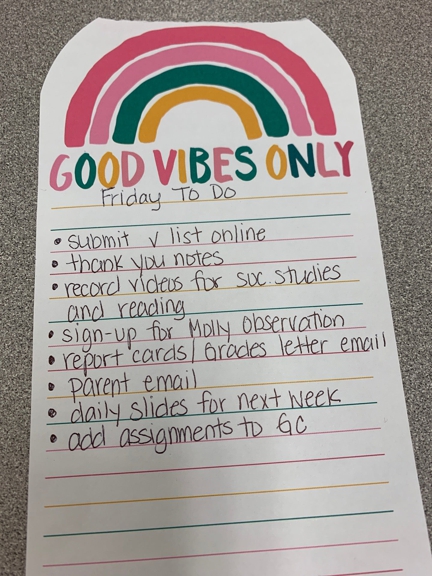 GOOD VIBES ONLY
Friday To Do
• submit √ list online
• thank you notes
• record videos for soc. studies
and reading
• sign-up for Molly Observation
• report cards/Grades letter email
• parent email
• daily slides for next week
• add assignments to GC